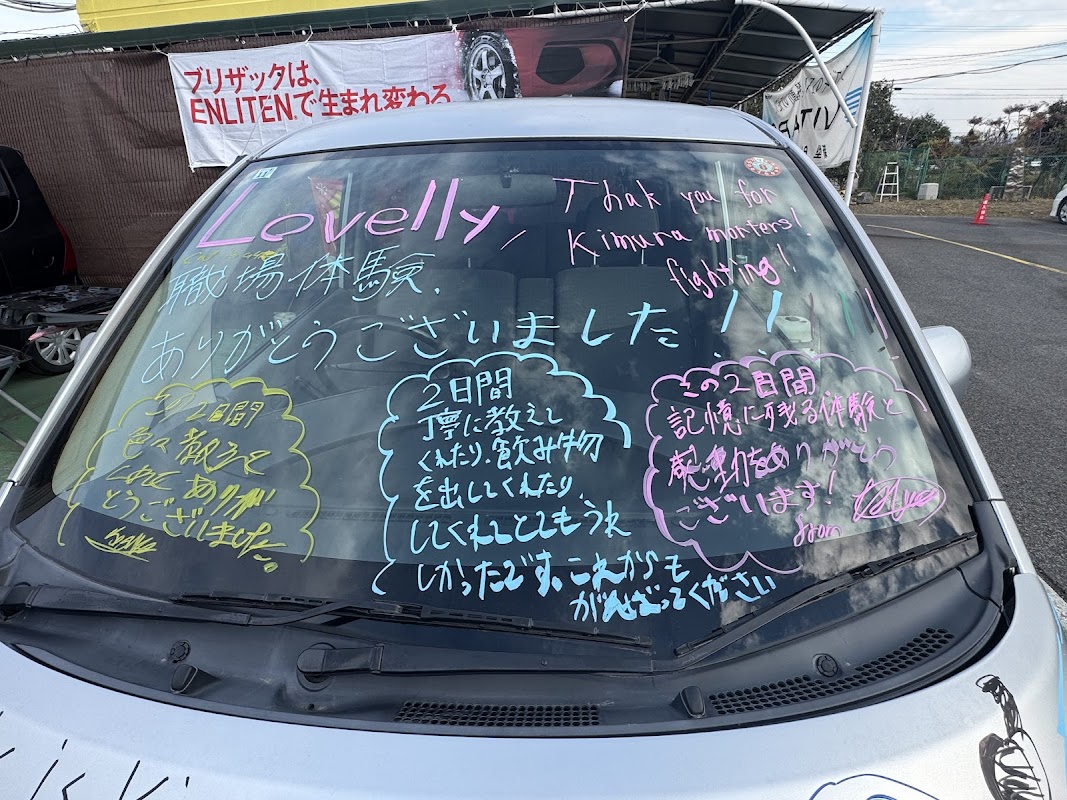 ブリザックは、
ENLITEN®で生まれ変わる
Lovelly
Thak you for
Kimura morters!
fighting!
職場体験、
ありがとうございました!!
この2日間
色々教えて
くれて ありが
とうございました。
2日間
丁寧に教えて
くれたり、飲み物
を出してくれたり
してくれてとてもうれ
しかったです。これからも
がんばってください
この2日間
記憶に残る体験と
感動をありがとう
ございます!
from